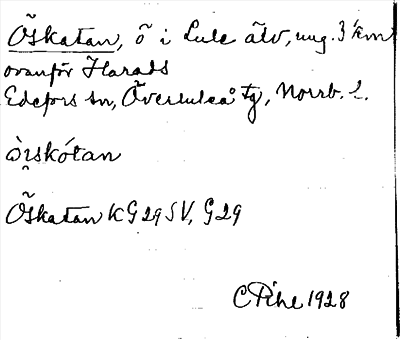 Öskatan, ö i Lule älv, ung. 3 km
ovanför Harads
Edefors sn, Överluleå tg, Norrb. l.
Öskatan KG29SV, G29
C Pihl 1928